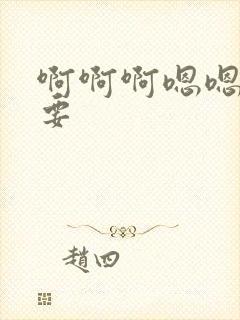 啊啊啊嗯嗯
要
趙四